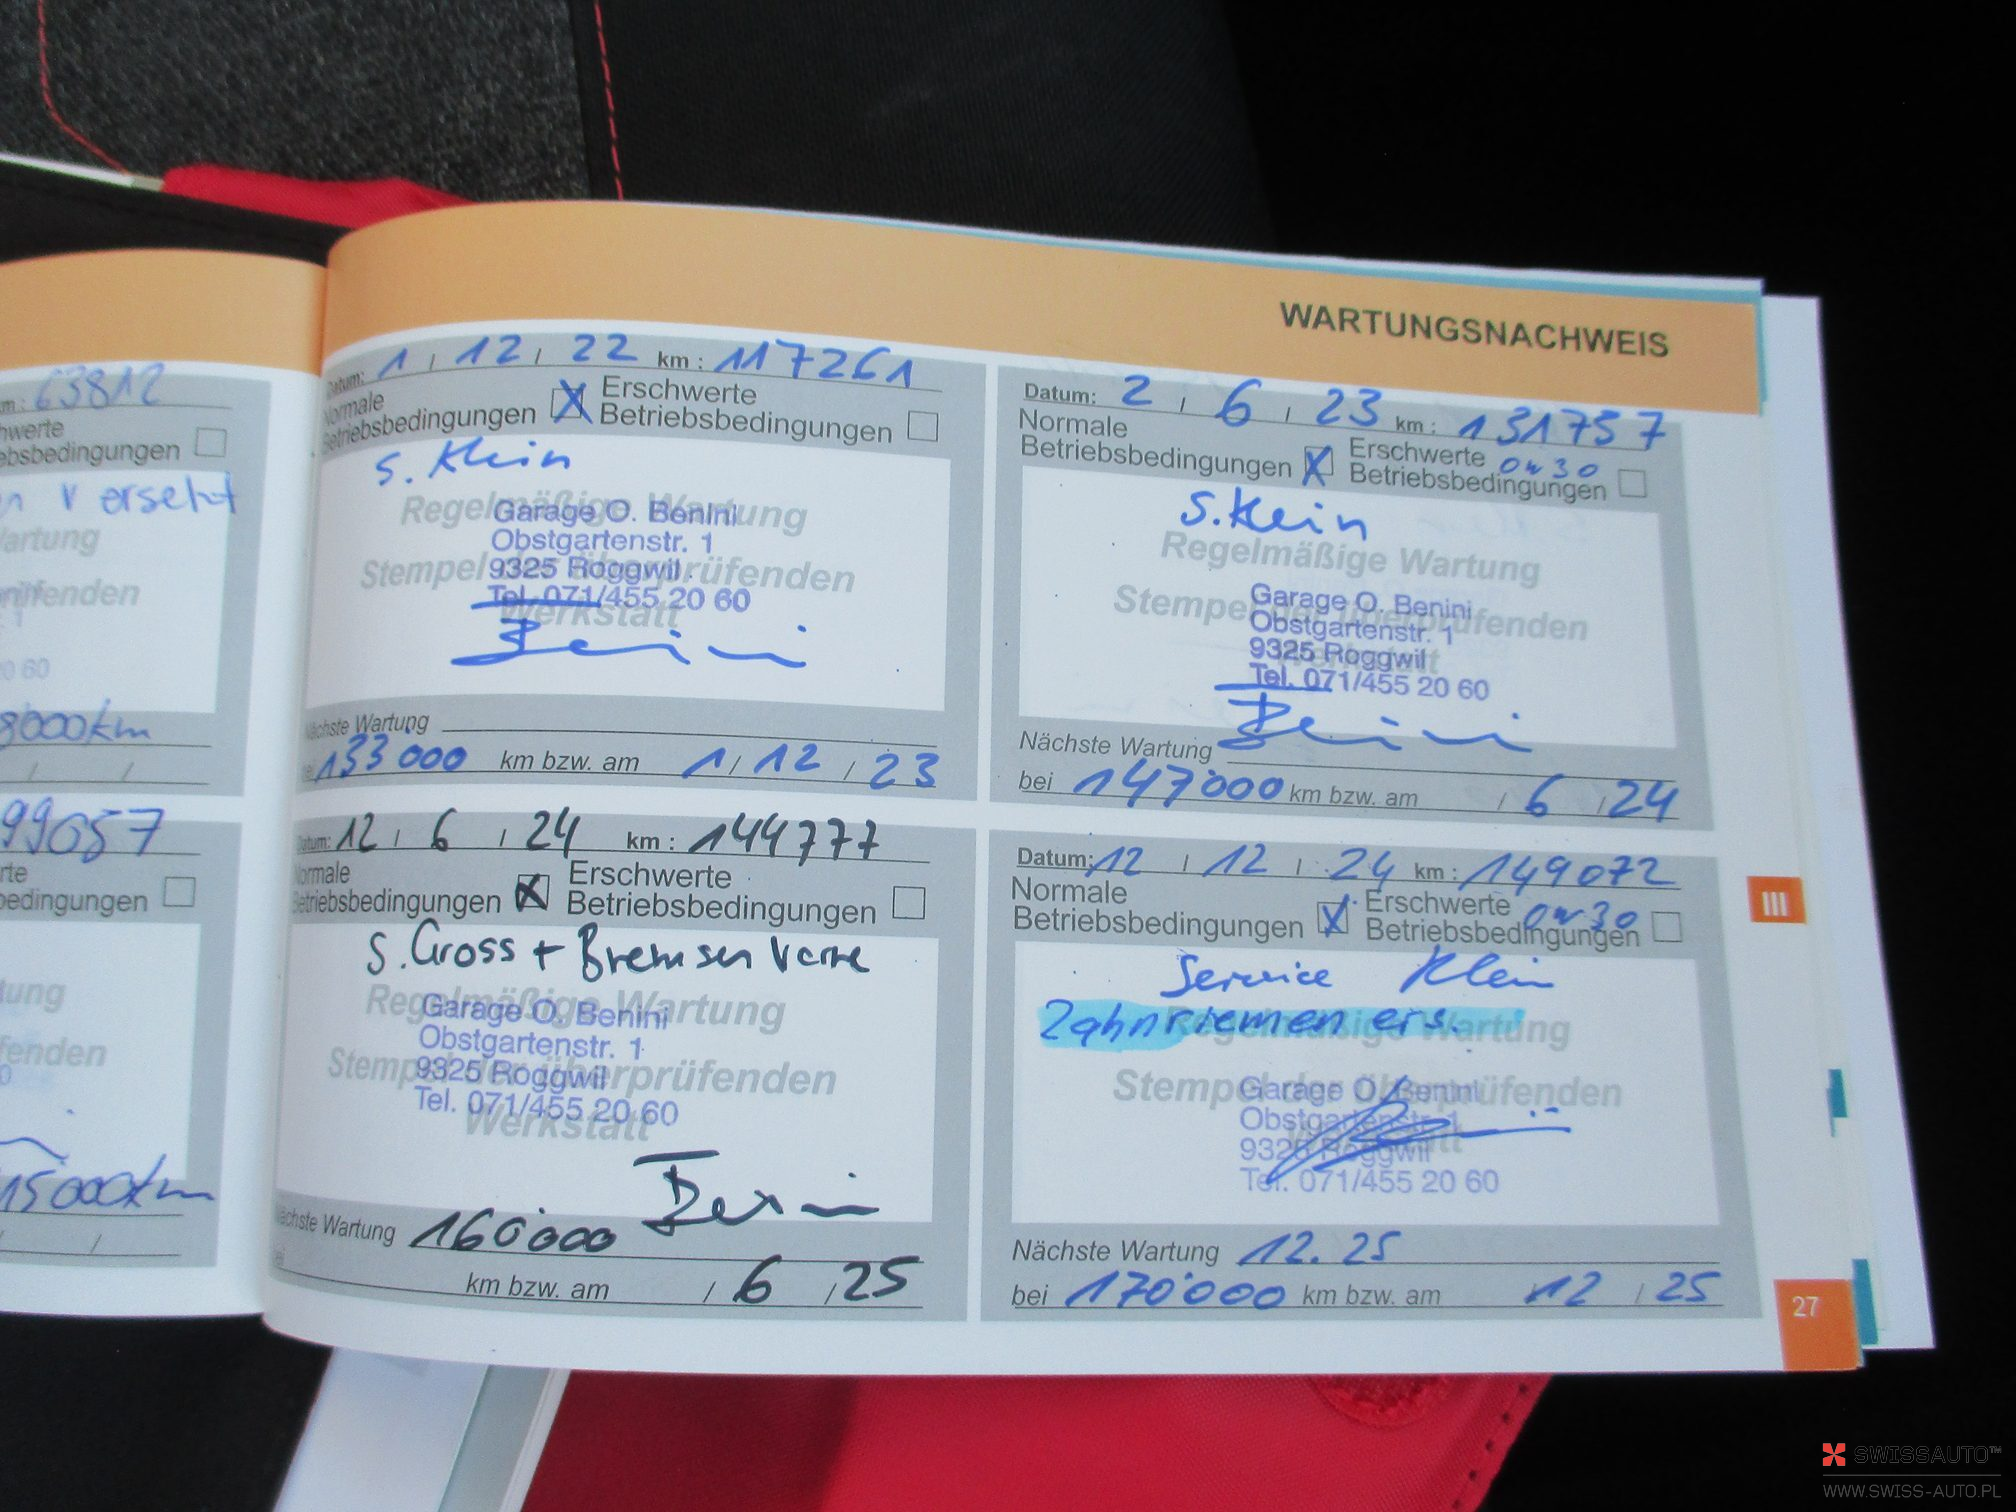 WARTUNGSNACHWEIS
63812
ersetzt
8000km
99057
15000km
Datum: 1 / 12 / 22 km : 117261
Normale Betriebsbedingungen X Erschwerte Betriebsbedingungen
S. Klein
Regelmäßige Wartung
Stempel der überprüfenden
Werkstatt
Garage O. Benini
Obstgartenstr. 1
9325 Roggwil
Tel. 071/455 20 60
Benini
Nächste Wartung
133'000 km bzw. am 1 / 12 / 23
Datum: 2 / 6 / 23 km : 131757
Normale Betriebsbedingungen X Erschwerte Betriebsbedingungen
0w30
S. Klein
Regelmäßige Wartung
Stempel der überprüfenden
Werkstatt
Garage O. Benini
Obstgartenstr. 1
9325 Roggwil
Tel. 071/455 20 60
Benini
Nächste Wartung
bei 147'000 km bzw. am / 6 / 24
Datum: 12 / 6 / 24 km : 144777
Normale Betriebsbedingungen X Erschwerte Betriebsbedingungen
S. Gross + Bremsen vorne
Regelmäßige Wartung
Stempel der überprüfenden
Werkstatt
Garage O. Benini
Obstgartenstr. 1
9325 Roggwil
Tel. 071/455 20 60
Benini
Nächste Wartung 160'000
km bzw. am / 6 / 25
Datum: 12 / 12 / 24 km : 149072
Normale Betriebsbedingungen X Erschwerte Betriebsbedingungen
0w30
Service Klein
Zahnriemen ers.
Regelmäßige Wartung
Stempel der überprüfenden
Werkstatt
Garage O. Benini
Obstgartenstr. 1
9325 Roggwil
Tel. 071/455 20 60
Nächste Wartung 12.25
bei 170'000 km bzw. am 12 / 25
III
27
SWISSAUTO™
WWW.SWISS-AUTO.PL